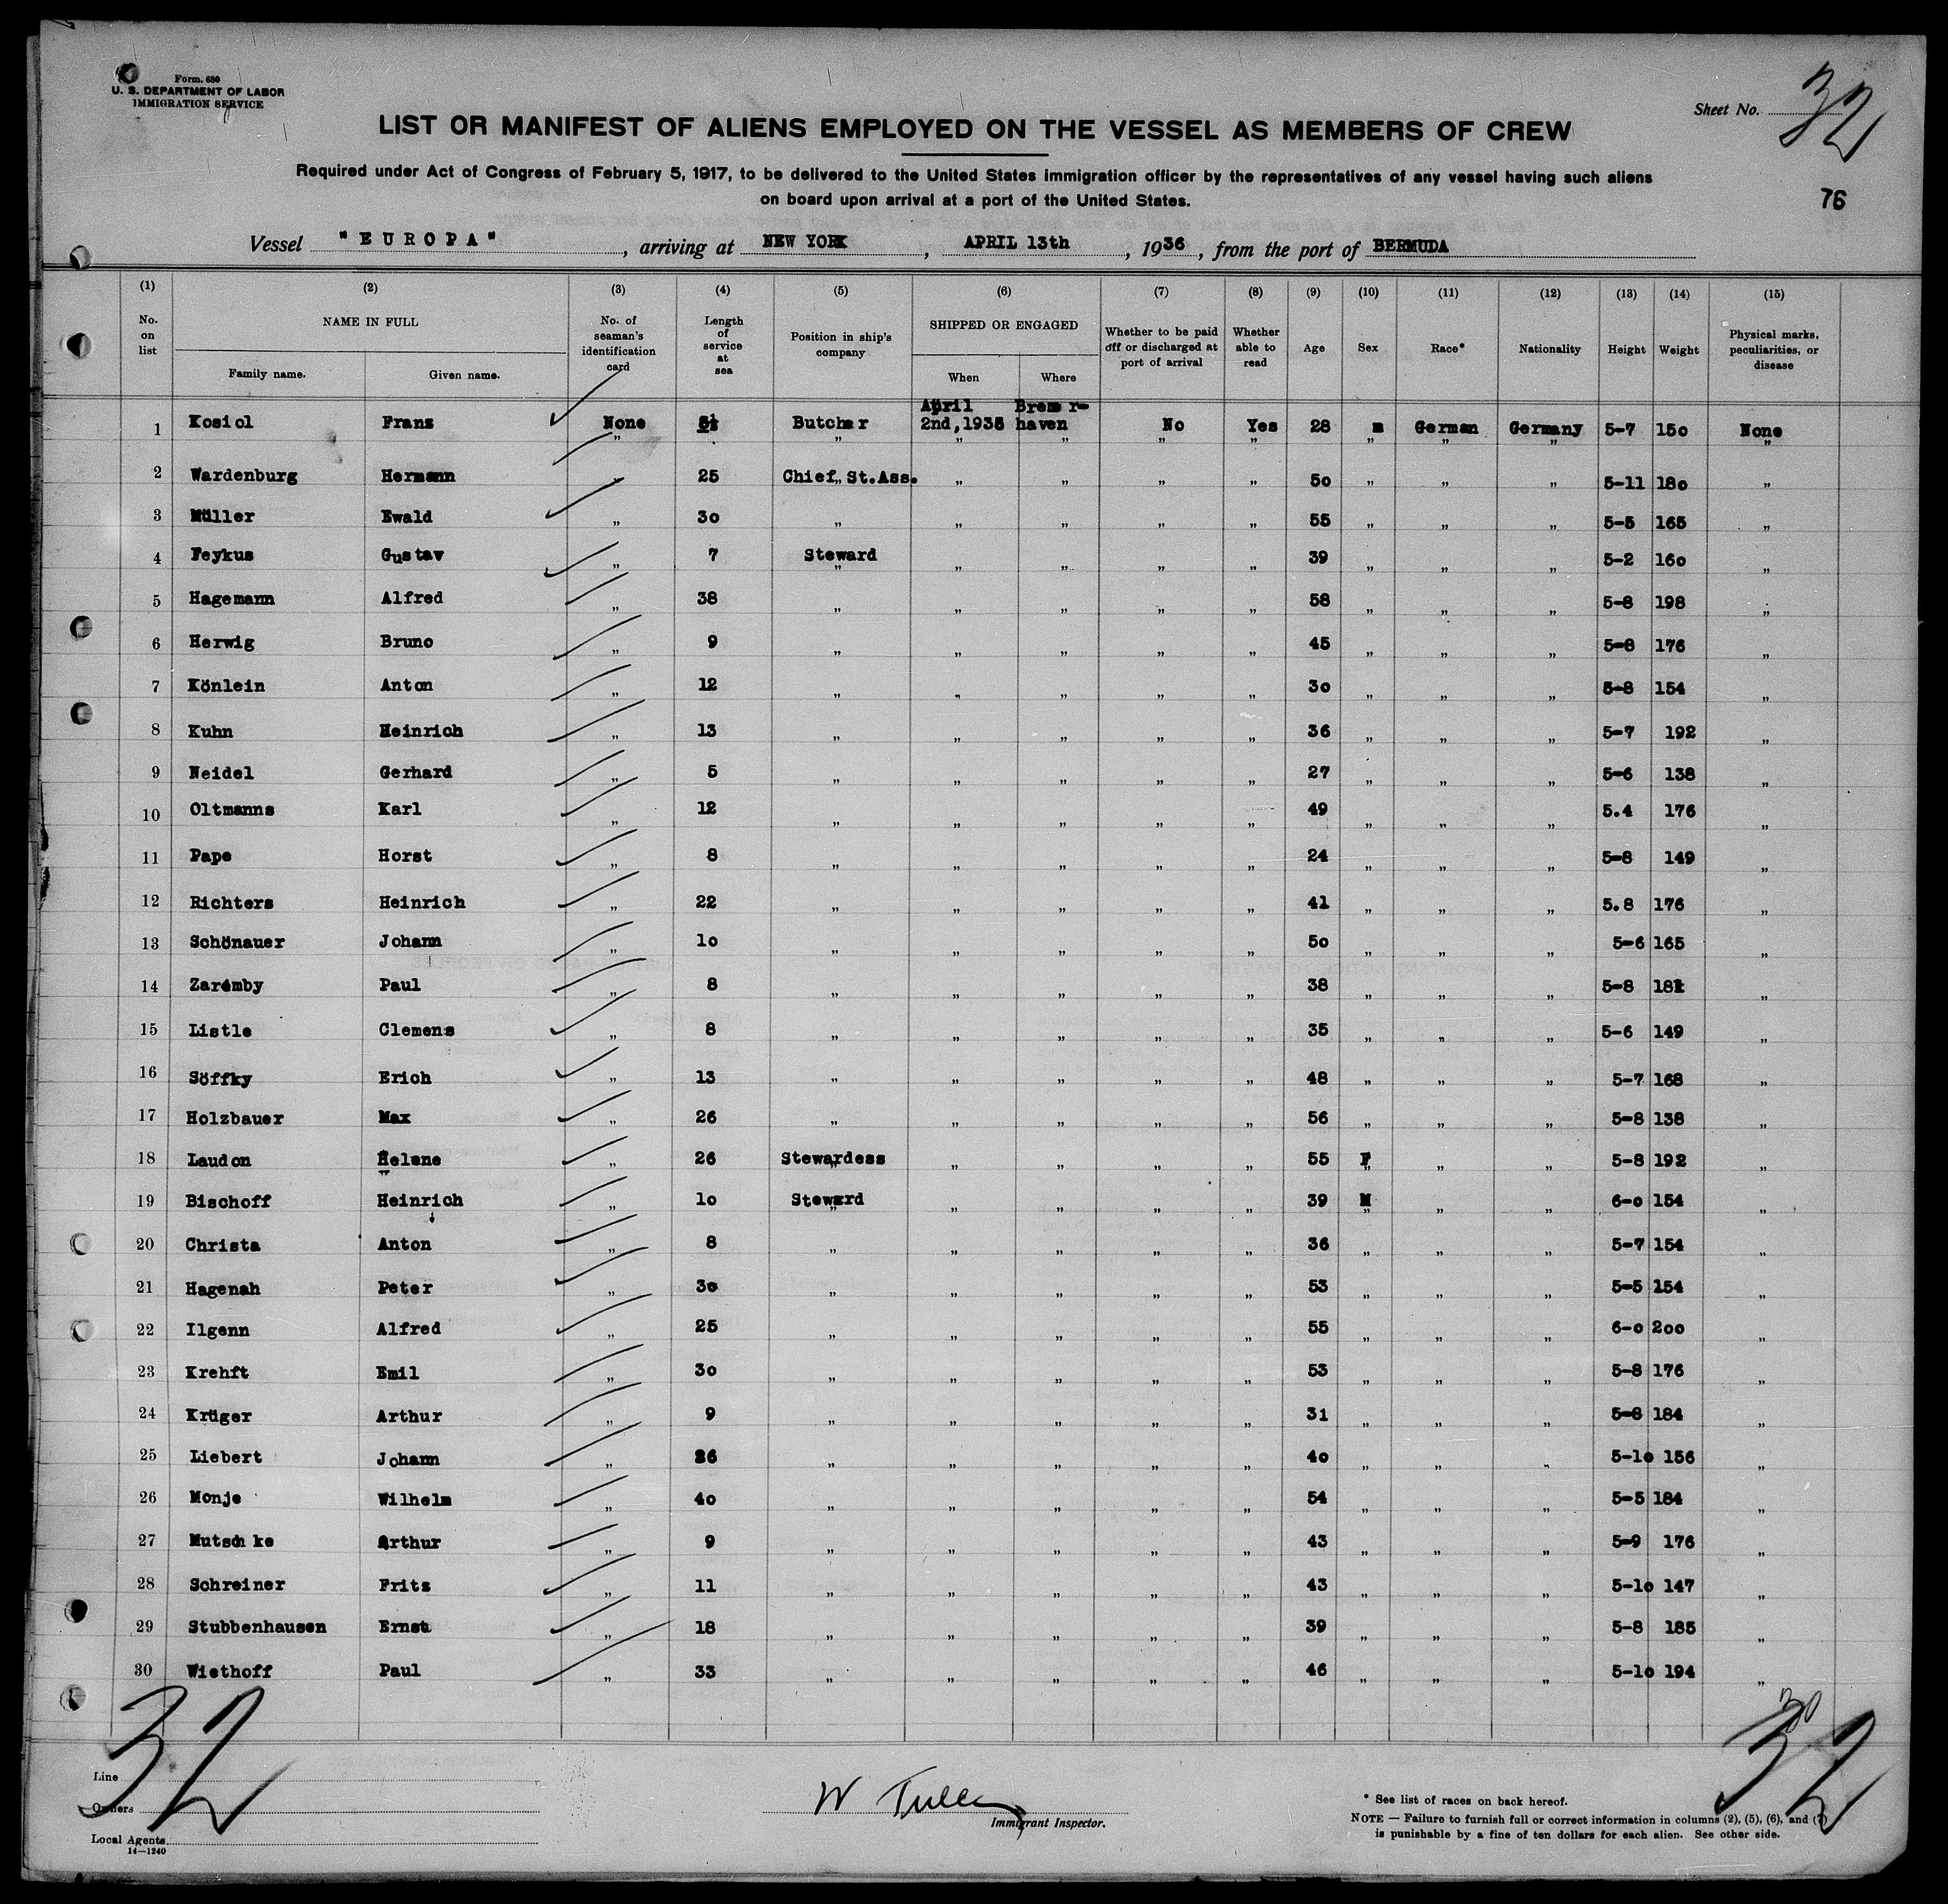 Form. 680
U. S. DEPARTMENT OF LABOR
IMMIGRATION SERVICE
Sheet No. 32
LIST OR MANIFEST OF ALIENS EMPLOYED ON THE VESSEL AS MEMBERS OF CREW
Required under Act of Congress of February 5, 1917, to be delivered to the United States immigration officer by the representatives of any vessel having such aliens
on board upon arrival at a port of the United States.
76
Vessel "EUROPA", arriving at NEW YORK, APRIL 13th, 1936, from the port of BERMUDA
(1) (2) (3) (4) (5) (6) (7) (8) (9) (10) (11) (12) (13) (14) (15)
No. on list NAME IN FULL Family name. Given name. No. of seaman's identification card Length of service at sea Position in ship's company SHIPPED OR ENGAGED When Where Whether to be paid off or discharged at port of arrival Whether able to read Age Sex Race* Nationality Height Weight Physical marks, peculiarities, or disease
1 Kosiol Franz None Butcher April 2nd,1936 Bremer-haven No Yes 28 m German Germany 5-7 150 None
2 Wardenburg Hermann „ 25 Chief St.Ass. „ „ „ „ 50 „ „ „ 5-11 180 „
3 Müller Ewald „ 30 „ „ „ „ „ 55 „ „ „ 5-5 165 „
4 Feykus Gustav „ 7 Steward „ „ „ „ 39 „ „ „ 5-2 160 „
5 Hagemann Alfred „ 38 „ „ „ „ „ 58 „ „ „ 5-8 198 „
6 Herwig Bruno „ 9 „ „ „ „ „ 45 „ „ „ 5-8 176 „
7 Könlein Anton „ 12 „ „ „ „ „ 30 „ „ „ 5-8 154 „
8 Kuhn Heinrich „ 13 „ „ „ „ „ 36 „ „ „ 5-7 192 „
9 Neidel Gerhard „ 5 „ „ „ „ „ 27 „ „ „ 5-6 138 „
10 Oltmanns Karl „ 12 „ „ „ „ „ 49 „ „ „ 5.4 176 „
11 Pape Horst „ 8 „ „ „ „ „ 24 „ „ „ 5-8 149 „
12 Richters Heinrich „ 22 „ „ „ „ „ 41 „ „ „ 5.8 176 „
13 Schönauer Johann „ 10 „ „ „ „ „ 50 „ „ „ 5-6 165 „
14 Zaremby Paul „ 8 „ „ „ „ „ 38 „ „ „ 5-8 „
15 Listle Clemens „ 8 „ „ „ „ „ 35 „ „ „ 5-6 149 „
16 Söffky Erich „ 13 „ „ „ „ „ 48 „ „ „ 5-7 168 „
17 Holzbauer Max „ 26 „ „ „ „ „ 56 „ „ „ 5-8 138 „
18 Laudon Helene „ 26 Stewardess „ „ „ „ 55 F „ „ 5-8 192 „
19 Bischoff Heinrich „ 10 Steward „ „ „ „ 39 M „ „ 6-0 154 „
20 Christa Anton „ 8 „ „ „ „ „ 36 „ „ „ 5-7 154 „
21 Hagenah Peter „ 30 „ „ „ „ „ 53 „ „ „ 5-5 154 „
22 Ilgenn Alfred „ 25 „ „ „ „ „ 55 „ „ „ 6-0 200 „
23 Krehft Emil „ 30 „ „ „ „ „ 53 „ „ „ 5-8 176 „
24 Krüger Arthur „ 9 „ „ „ „ „ 31 „ „ „ 5-8 184 „
25 Liebert Johann „ 26 „ „ „ „ „ 40 „ „ „ 5-10 156 „
26 Monje Wilhelm „ 40 „ „ „ „ „ 54 „ „ „ 5-5 184 „
27 Mutschke Arthur „ 9 „ „ „ „ „ 43 „ „ „ 5-9 176 „
28 Schreiner Fritz „ 11 „ „ „ „ „ 43 „ „ „ 5-10 147 „
29 Stubbenhausen Ernst „ 18 „ „ „ „ „ 39 „ „ „ 5-8 185 „
30 Wiethoff Paul „ 33 „ „ „ „ „ 46 „ „ „ 5-10 194 „
32
30
32
Line
Owners
Local Agents
14—1240
W Tulley
Immigrant Inspector.
* See list of races on back hereof.
NOTE — Failure to furnish full or correct information in columns (2), (5), (6), and (7)
is punishable by a fine of ten dollars for each alien. See other side.